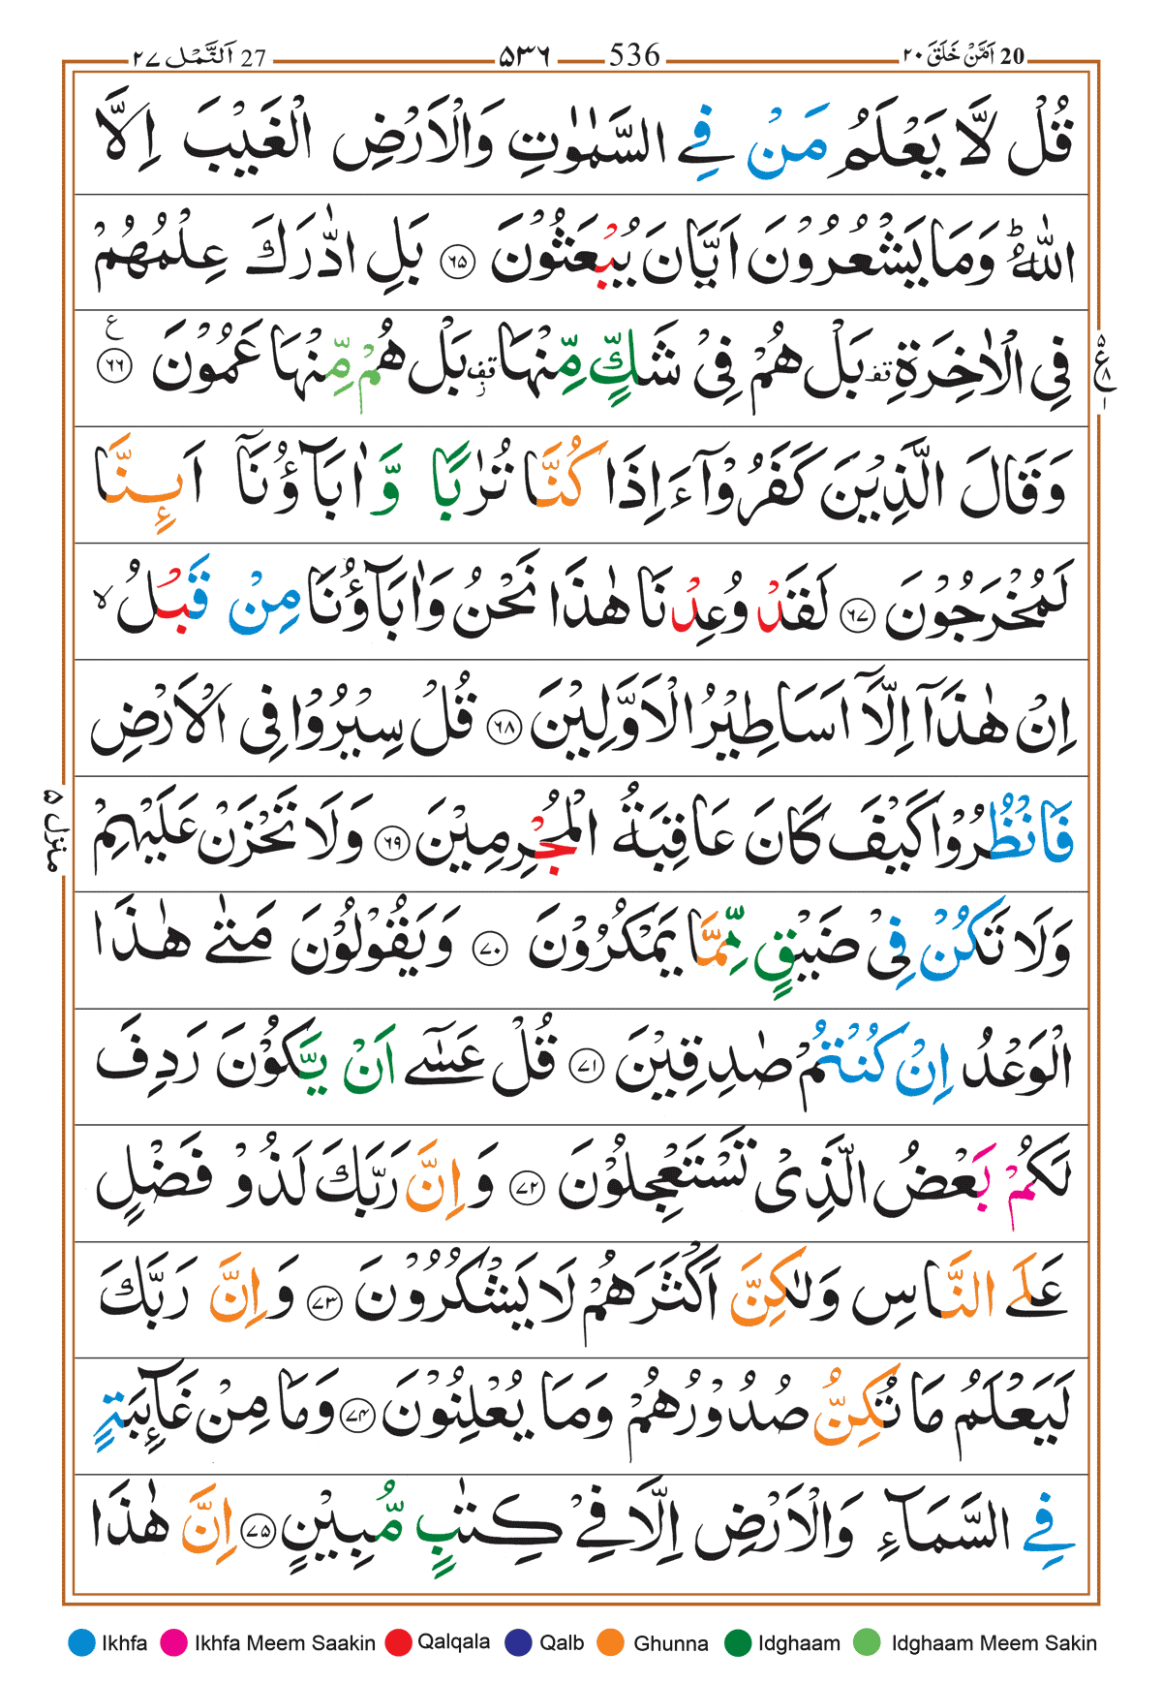 20 اَمَّنْ خَلَقَ ۲۰ 536 ۵۳۶ 27 اَلنَّمْل ۲۷
قُلْ لَّا يَعْلَمُ مَنْ فِي السَّمٰوٰتِ وَالْاَرْضِ الْغَيْبَ اِلَّا
اللّٰهُ ؕ وَمَا يَشْعُرُوْنَ اَيَّانَ يُبْعَثُوْنَ ۶۵ بَلِ ادّٰرَكَ عِلْمُهُمْ
فِي الْاٰخِرَةِ قف بَلْ هُمْ فِيْ شَكٍّ مِّنْهَا قف ز بَلْ هُمْ مِّنْهَا عَمُوْنَ ۶۶ ع
ع ۸ ۱
وَقَالَ الَّذِيْنَ كَفَرُوْٓا ءَاِذَا كُنَّا تُرٰبًا وَّاٰبَآؤُنَآ اَىِٕنَّا
لَمُخْرَجُوْنَ ۶۷ لَقَدْ وُعِدْنَا هٰذَا نَحْنُ وَاٰبَآؤُنَا مِنْ قَبْلُ ۙ
اِنْ هٰذَآ اِلَّآ اَسَاطِيْرُ الْاَوَّلِيْنَ ۶۸ قُلْ سِيْرُوْا فِي الْاَرْضِ
فَانْظُرُوْا كَيْفَ كَانَ عَاقِبَةُ الْمُجْرِمِيْنَ ۶۹ وَلَا تَحْزَنْ عَلَيْهِمْ
منزل ۵
وَلَا تَكُنْ فِيْ ضَيْقٍ مِّمَّا يَمْكُرُوْنَ ۷۰ وَيَقُوْلُوْنَ مَتٰى هٰذَا
الْوَعْدُ اِنْ كُنْتُمْ صٰدِقِيْنَ ۷۱ قُلْ عَسٰٓى اَنْ يَّكُوْنَ رَدِفَ
لَكُمْ بَعْضُ الَّذِيْ تَسْتَعْجِلُوْنَ ۷۲ وَاِنَّ رَبَّكَ لَذُوْ فَضْلٍ
عَلَى النَّاسِ وَلٰكِنَّ اَكْثَرَهُمْ لَا يَشْكُرُوْنَ ۷۳ وَاِنَّ رَبَّكَ
لَيَعْلَمُ مَا تُكِنُّ صُدُوْرُهُمْ وَمَا يُعْلِنُوْنَ ۷۴ وَمَا مِنْ غَآىِٕبَةٍ
فِي السَّمَآءِ وَالْاَرْضِ اِلَّا فِيْ كِتٰبٍ مُّبِيْنٍ ۷۵ اِنَّ هٰذَا
Ikhfa Ikhfa Meem Saakin Qalqala Qalb Ghunna Idghaam Idghaam Meem Sakin